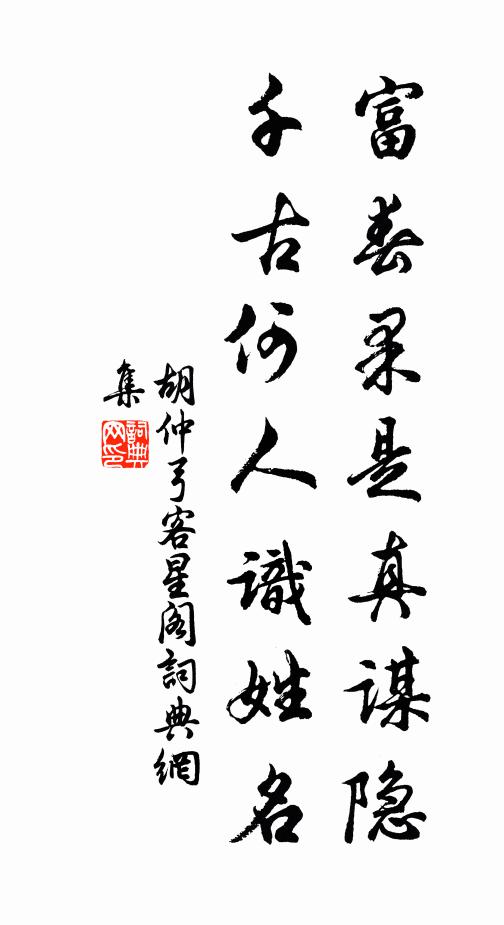 富春果是真谋隐
千古何人識姓名
胡仲弓客星阁詞典網
集
詞典网印